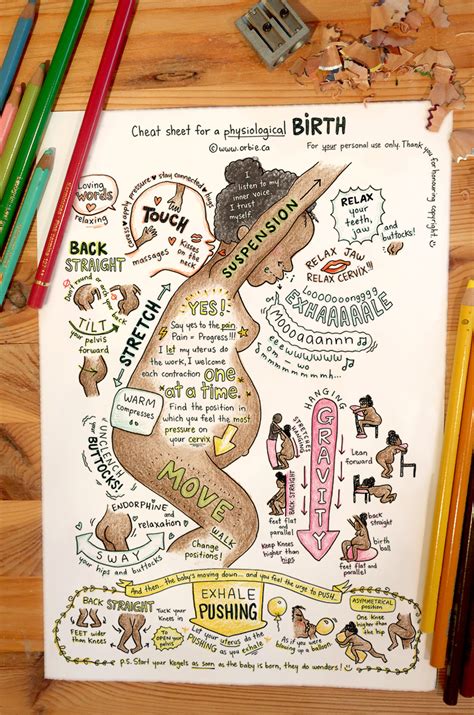 Cheat sheet for a physiological BIRTH
©www.orbie.ca
For your personal use only. Thank you for honouring copyright.
Loving
words
relaxing
apply pressure • stay connected • hugs
TOUCH
massages
Kisses
on the
neck
I listen to my
inner voice.
I trust
myself.
SUSPENSION
RELAX
your
teeth,
jaw
and
buttocks!
RELAX JAW
RELAX CERVIX!!!
Looooooonggg
EXHAAAAALE
BACK
STRAIGHT
Don't round or arch your back
TILT
your
pelvis
forward
STRETCH
YES!
Say yes to the pain.
Pain = Progress!!!
I let my uterus do
the work, I welcome
each contraction one
at a time.
Find the position in
which you feel the most
pressure on
your cervix
WARM
compresses
UNCLENCH
BUTTOCKS!
MOVE
WALK
Change
positions!
ENDORPHINE
and
relaxation
SWAY
your hips and buttocks
HANGING
STRETCHES
HANGING
GRAVITY
Lean
forward
BACK STRAIGHT
feet flat
and
parallel
Keep Knees
higher than
hips
back
straight
birth
ball
feet flat
and
parallel
And then... the baby's moving down... and you feel the urge to PUSH...
EXHALE
PUSHING
BACK STRAIGHT
FEET wider than
knees
Tuck your
Knees in
TO OPEN your
pelvis
Let your uterus do the
pushing as you exhale.
As if you were
blowing up a balloon.
ASYMMETRICAL
position
One knee
higher than
the hip
P.S. Start your Kegels as soon as the baby is born, they do wonders!